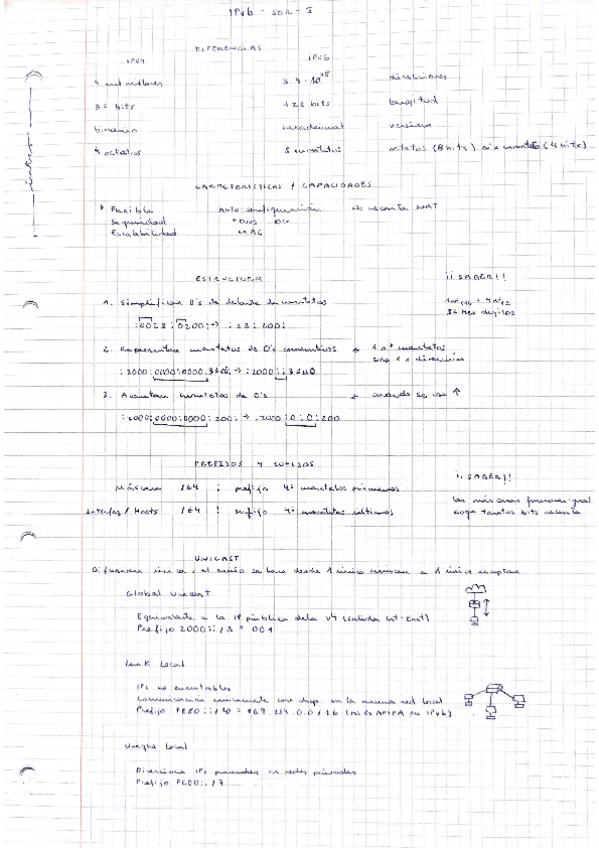 IPv6 - SOR - I
DIFERENCIAS
IPv4 IPv6
4 mil millones 3.4 · 10³⁸ direcciones
32 bits 128 bits longitud
binario hexadecimal
4 octetos 8 cuartetos octetos (8 bits) cuartetos (4 bits)
intro
CARACTERISTICAS Y CAPACIDADES
* Flexible Auto configuración no necesita NAT
Seguridad
Escalabilidad MAC
ESTRUCTURA ¡¡ SABER!!
1. Simplificar 0's de delante de cuartetos
32 Hex digitos
:0023:0200: → :23:200:
2. Representar cuartetos de 0's consecutivos
:2000:0000:0000:
3. Acortar cuartetos de 0's cuando se usa ↑
:2000:0000:0000:200: → :2000:0:0:200
PREFIJOS Y SUFIJOS
¡¡ SABER!!
Máscara /64 : prefijo 4 cuartetos primeros
Las máscaras funcionan igual
Interfaz / Hosts /64 : sufijo 4 cuartetos últimos
coge tantos bits necesita
UNICAST
Difusion única, el envío se hace desde 1 único a 1 único receptor
Global Unicast
Equivalente a la IP pública de la v4
Prefijo 2000::/3 = 001
Link Local
IPs no enrutables
Comunicación unicamente con disp. en la misma red local
Prefijo FE80::/10 = 169.254.0.0/16 (no es APIPA en IPv6)
Unique Local
Direcciones IPs privadas en redes privadas
Prefijo FC00::/7